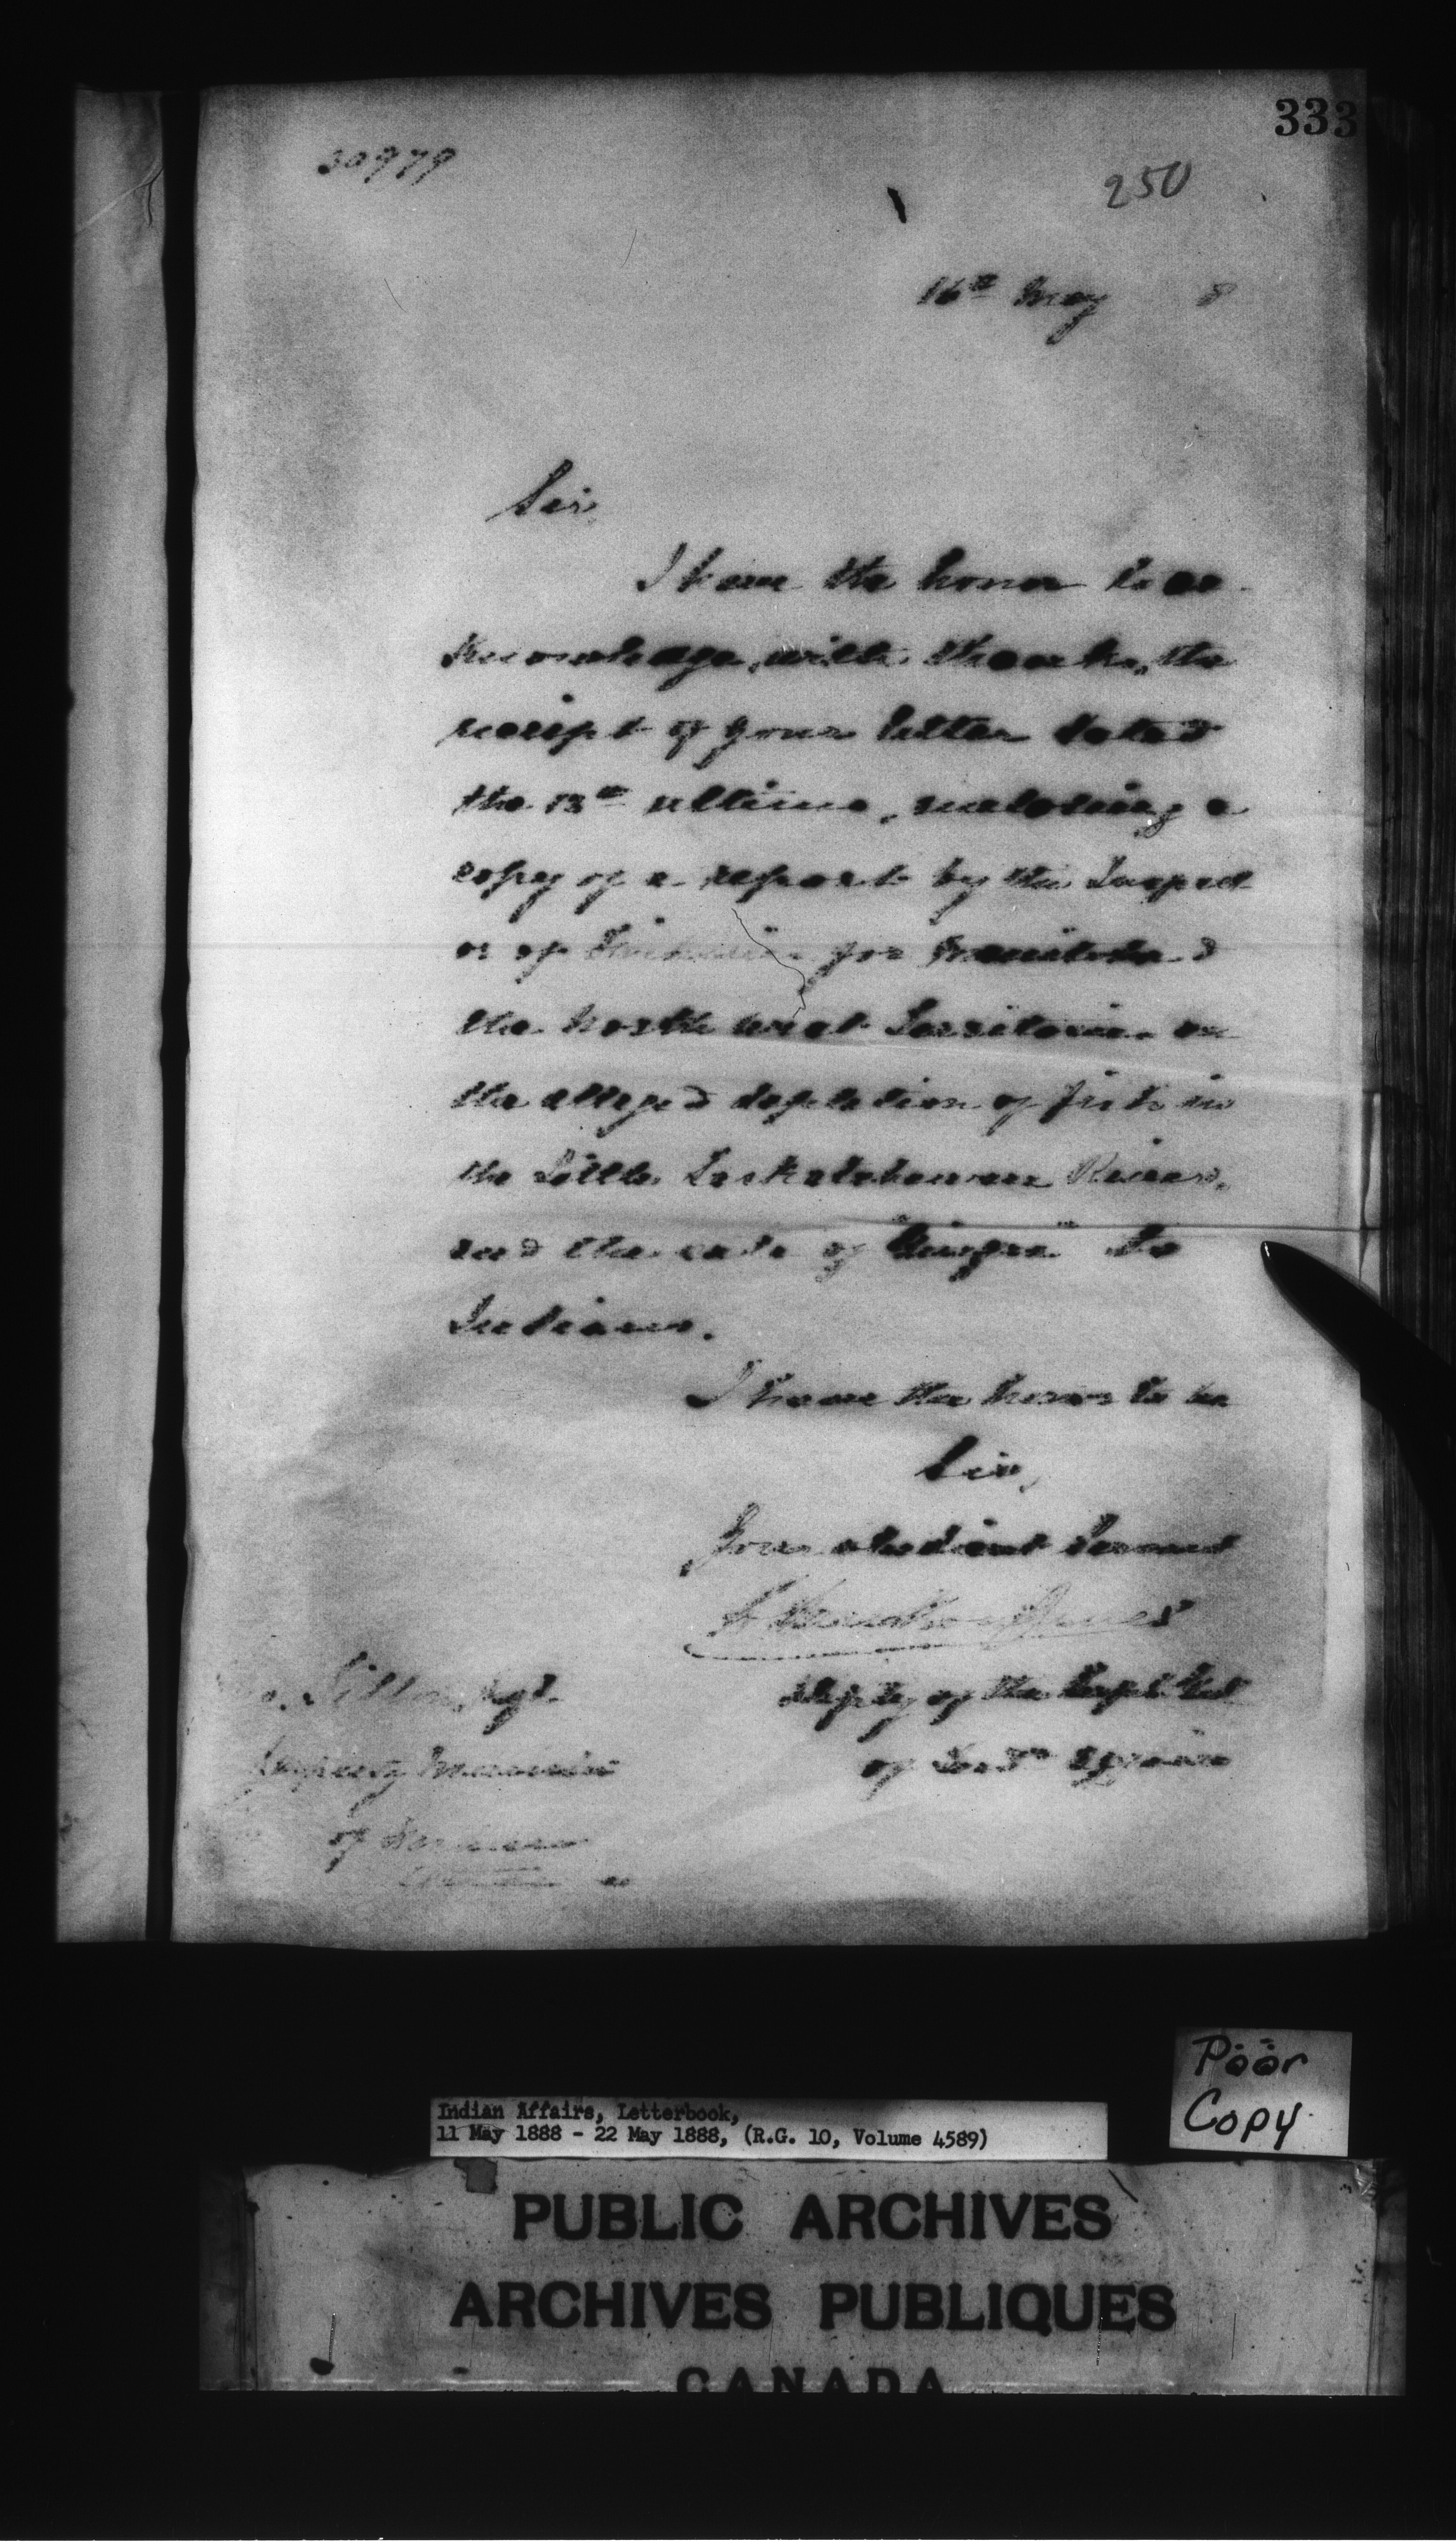 333
30979
250
16th May 8
Sir,
I have the honor to ac-
knowledge, with thanks, the
receipt of your letter dated
the 13th ultimo, enclosing a
copy of a report by the Inspect
or of Fisheries for Manitoba &
the North West Territories on
the alleged depletion of fish in
the Little Saskatchewan River,
and the sale of "Ginger" to
Indians.
I have the honor to be
Sir,
Your obedient Servant
Tilton, Esqr.
Deputy of the Supt. Genl
Deputy Minister
of Indn Affairs
of Fisheries
Poor
Copy
Indian Affairs, Letterbook,
11 May 1888 - 22 May 1888, (R.G. 10, Volume 4589)
PUBLIC ARCHIVES
ARCHIVES PUBLIQUES
CANADA